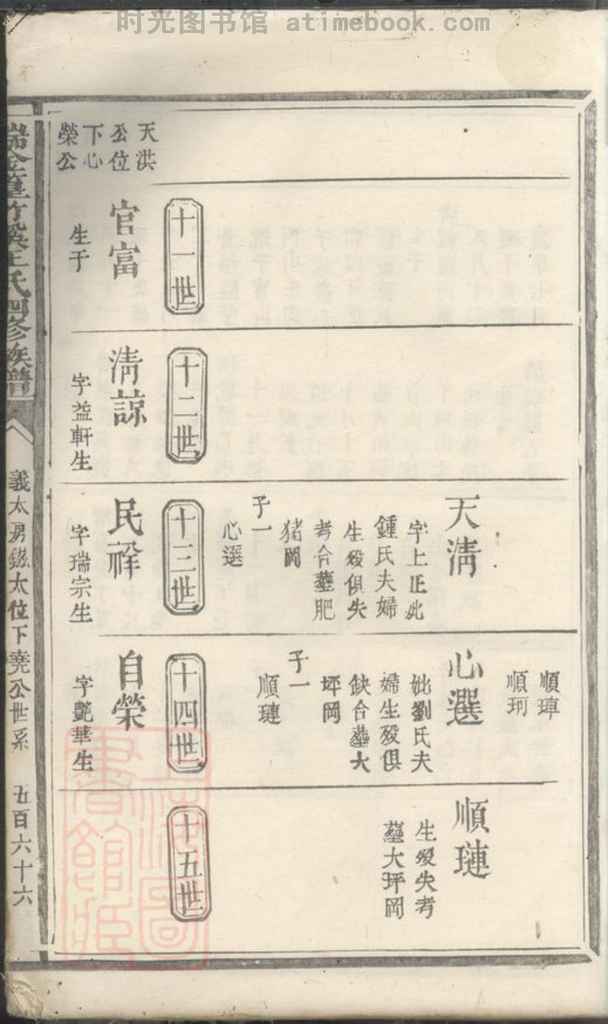 时光图书馆 atimebook.com
順琸
順珂
天清
字上正妣
鍾氏夫婦
生殁俱失
考合墓肥
猪岡
子一
心選
心選
妣劉氏夫
婦生殁俱
缺合墓大
坪岡
子一
順璉
順璉
生殁失考
墓大坪岡
天洪
公位
下心
榮公
十一世
官富
生于
十二世
清諒
字益軒生
十三世
民禄
字瑞宗生
十四世
自榮
字艷華生
十五世
氏四修族譜
義太房
太位下堯公世系
五百六十六